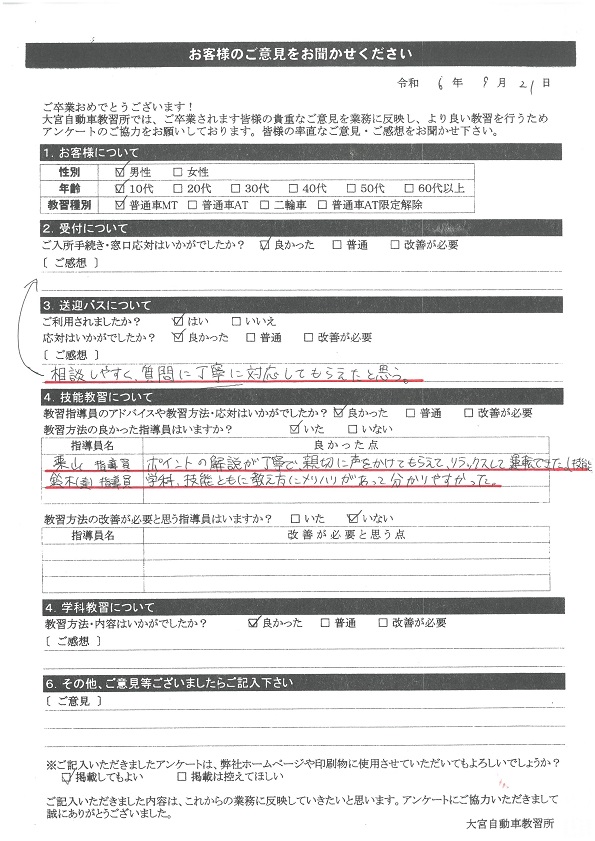 お客様のご意見をお聞かせください
令和 6 年 9 月 21 日
ご卒業おめでとうございます！
大宮自動車教習所では、ご卒業されます皆様の貴重なご意見を業務に反映し、より良い教習を行うため
アンケートのご協力をお願いしております。皆様の率直なご意見・ご感想をお聞かせ下さい。
1. お客様について
性別 ☑男性 □女性
年齢 ☑10代 □20代 □30代 □40代 □50代 □60代以上
教習種別 ☑普通車MT □普通車AT □二輪車 □普通車AT限定解除
2. 受付について
ご入所手続き・窓口応対はいかがでしたか？ ☑良かった □普通 □改善が必要
〔 ご感想 〕
3. 送迎バスについて
ご利用されましたか？ ☑はい □いいえ
応対はいかがでしたか？ ☑良かった □普通 □改善が必要
〔 ご感想 〕
相談しやすく、質問に丁寧に対応してもらえたと思う。
4. 技能教習について
教習指導員のアドバイスや教習方法・応対はいかがでしたか？ ☑良かった □普通 □改善が必要
教習方法の良かった指導員はいますか？ ☑いた □いない
指導員名 良かった点
栗山 指導員 ポイントの解説が丁寧で、親切に声をかけてもらえて、リラックスして運転できた(技能
鈴木 指導員 学科、技能ともに教え方にメリハリがあって分かりやすかった。
教習方法の改善が必要と思う指導員はいますか？ □いた ☑いない
指導員名 改善が必要と思う点
4. 学科教習について
教習方法・内容はいかがでしたか？ ☑良かった □普通 □改善が必要
〔 ご感想 〕
6. その他、ご意見等ございましたらご記入下さい
〔 ご意見 〕
※ご記入いただきましたアンケートは、弊社ホームページや印刷物に使用させていただいてもよろしいでしょうか？
☑掲載してもよい □掲載は控えてほしい
ご記入いただきました内容は、これからの業務に反映していきたいと思います。アンケートにご協力いただきまして
誠にありがとうございました。
大宮自動車教習所